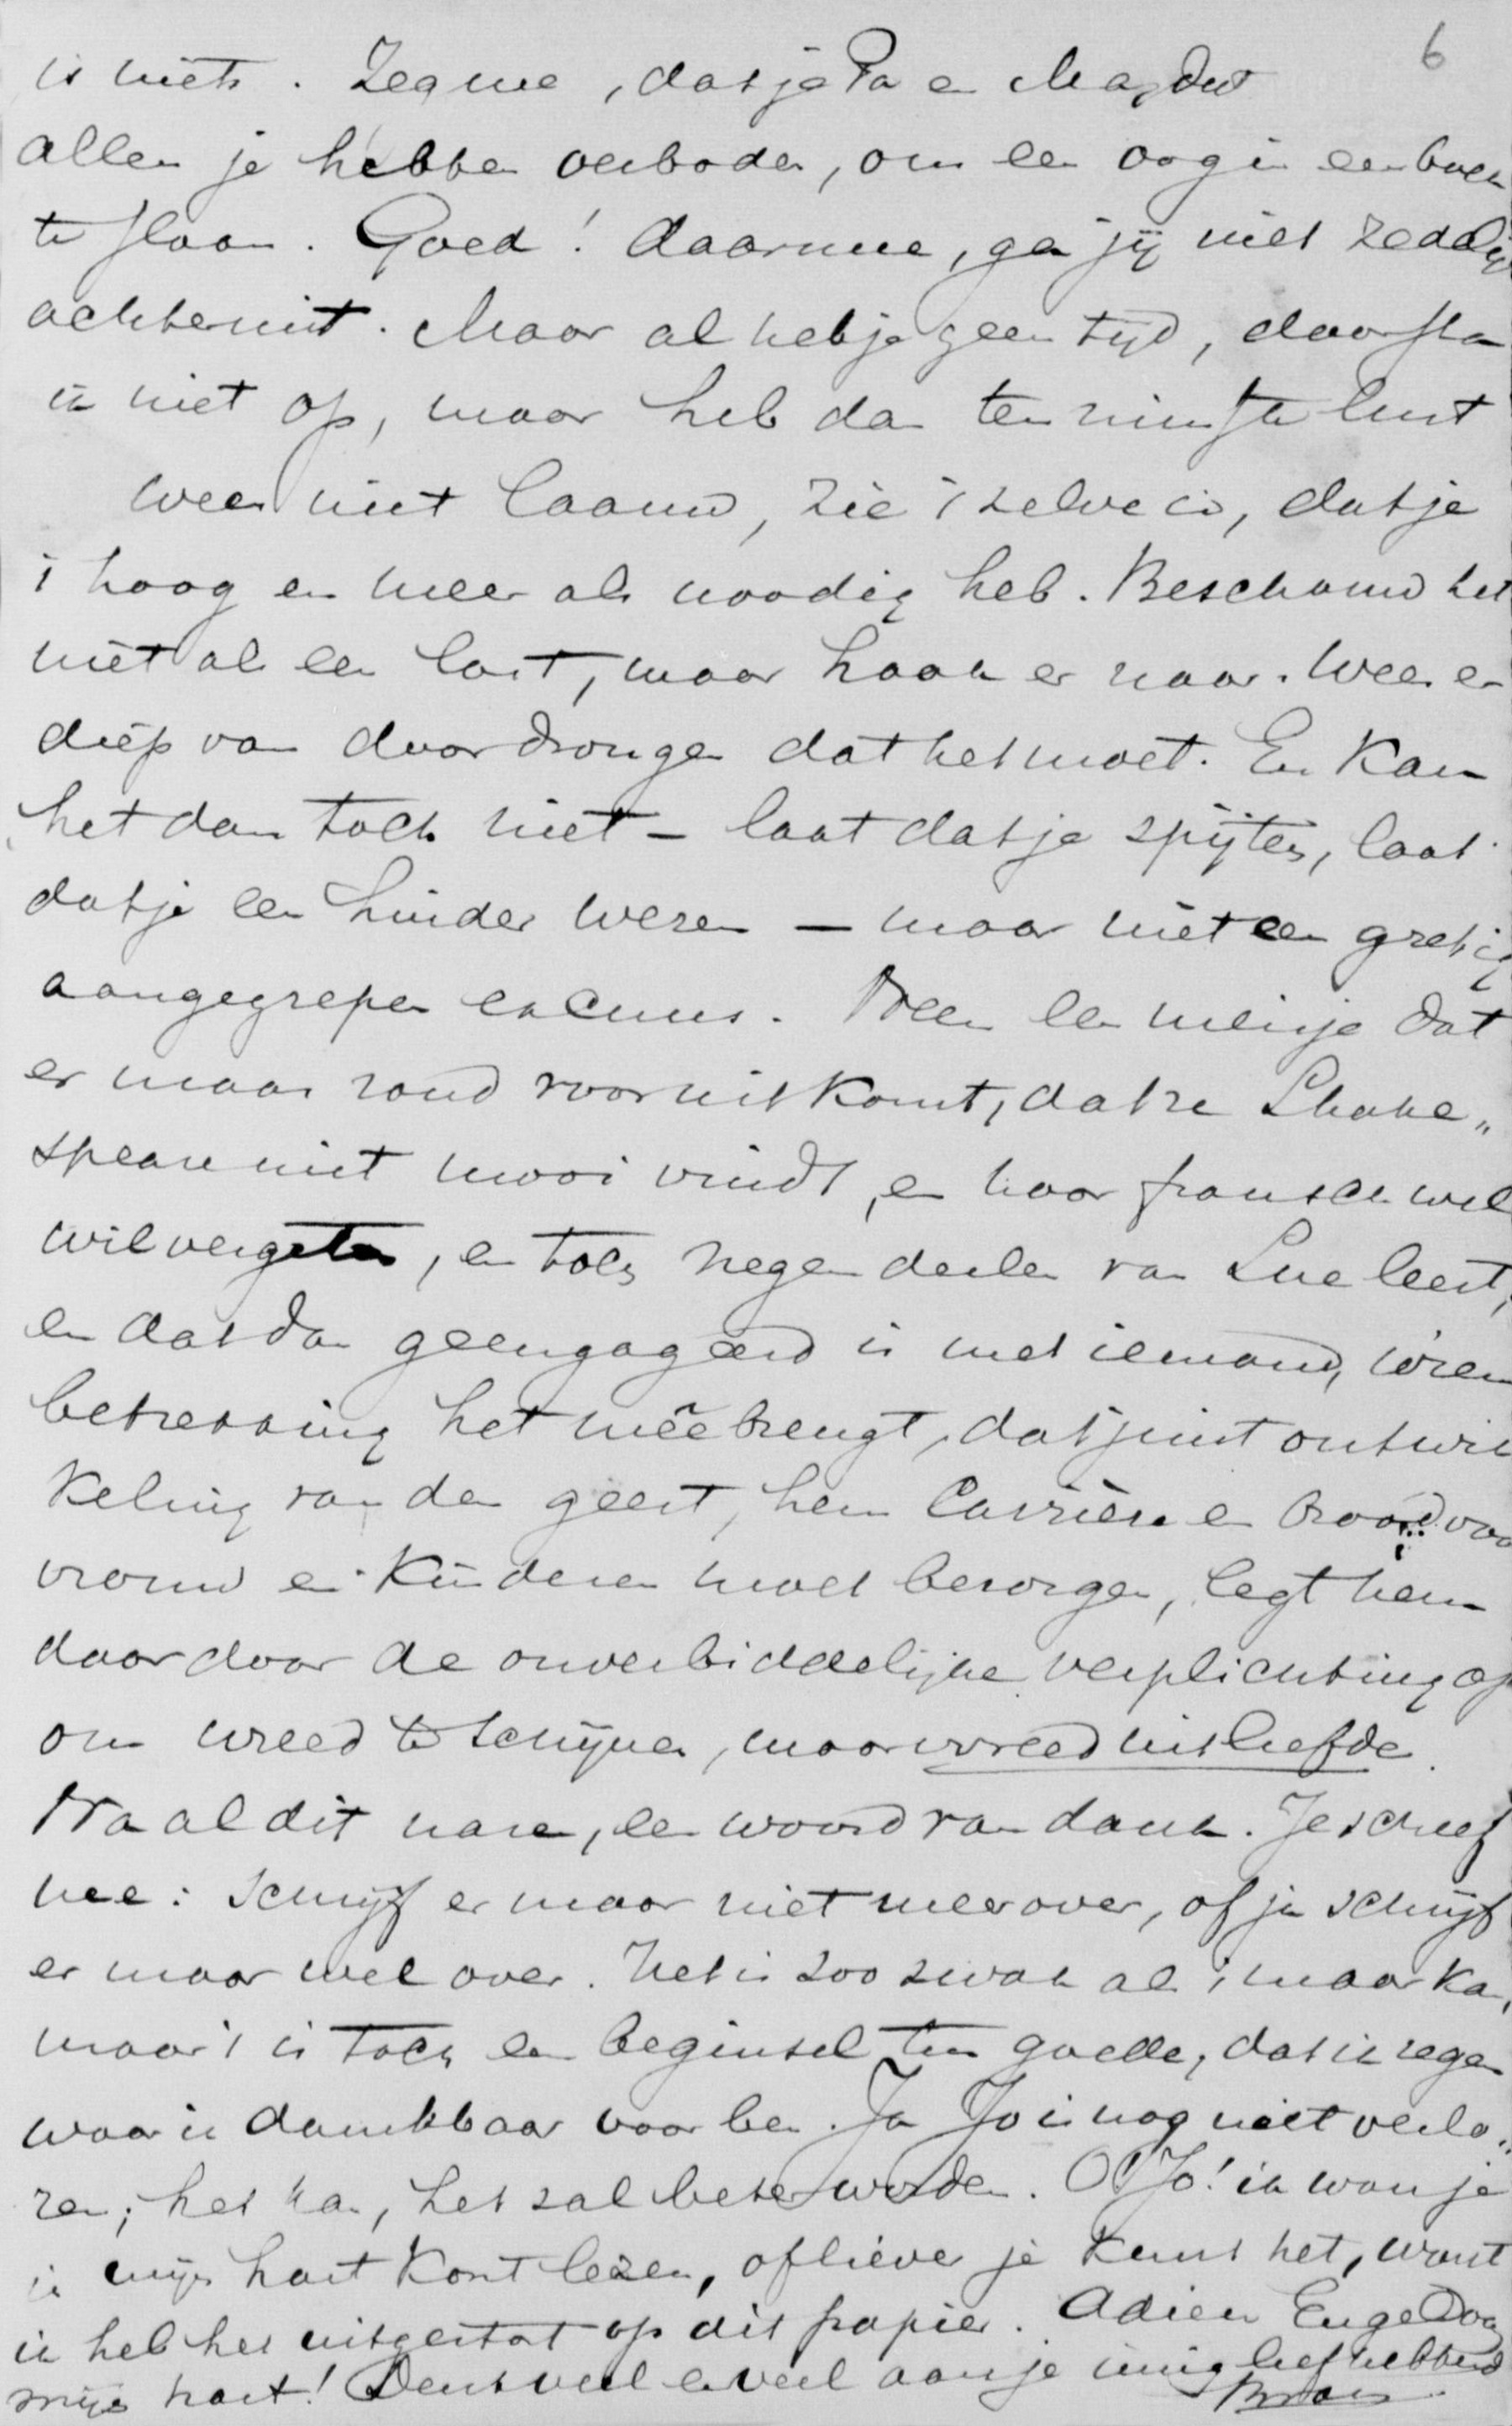 6
is niets. Zeg me, dat je Pa en Ma, dat
allen je hebben verboden, om een oog in een boek
te slaan. Goed! daarmee, ga jij niet zedelijk
achteruit. Maar al heb je geen tijd, daar sta
ik niet op, maar heb dan ten minste lust
wees niet laauw, zie 't zelve in, dat je
't hoog en meer als noodig heb. Beschouw het
niet als een last, maar haak er naar. Wees er
diep van doordrongen dat het moet. En kan
het dan toch niet – laat dat je spijten, laat
dat je een hinder wezen – maar niet een gretig
aangegrepen excuus. Neen een meisje dat
er maar rond voor uitkomt, dat ze Shake„
speare niet mooi vindt, en haar fransch wel
wil vergeten, en toch negen deelen van Sue leest,
en dat dan geengageerd is met iemand, wiens
betrekking het meêbrengt, dat juist ontwik
keling van den geest, hem Carrière en brood voor
vrouw en kinderen moet bezorgen, legt hem
daardoor de onverbiddelijke verplichting op
om wreed te schijnen, maar wreed uit liefde.
Na al dit nare, een woord van dank. Je schreef
me: schrijf er maar niet meer over, of ja schrijf
er maar wel over. Het is zoo zwak als 't maar kan,
maar 't is toch een beginsel ten goede, dat ik zegen
waar ik dankbaar voor ben. Ja Jo is nog niet verlo„
ren; het kan, het zal beter worden. O Jo! ik wou je
in mijn hart kont lezen, of liever je kunt het, want
ik heb het uitgestort op dit papier. Adieu Engel van
mijn hart! Denk veel en veel aan je innig liefhebbend
Bram